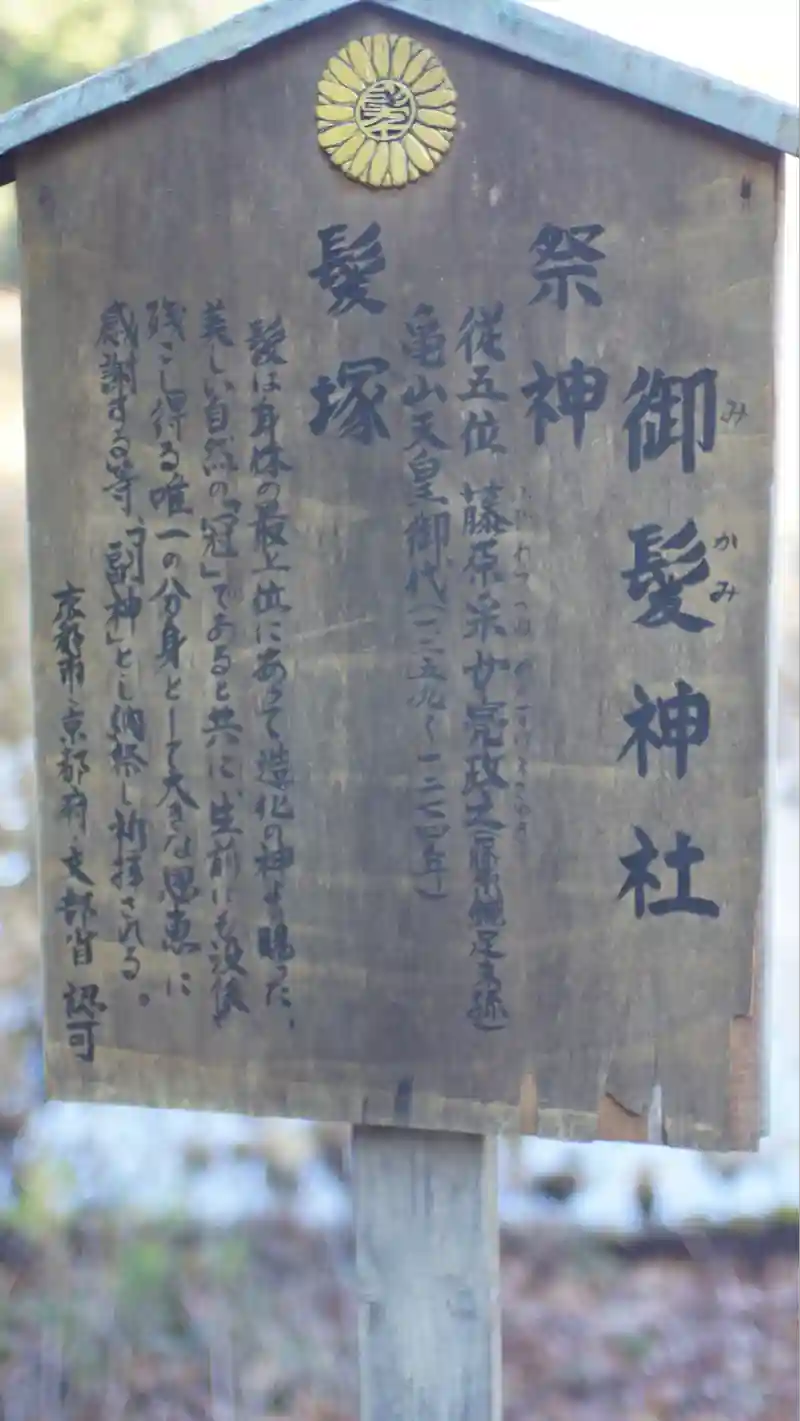 御髪神社
みかみ
祭神
従五位 藤原采女亮政之(藤原鎌足系孫)
亀山天皇御代(一二五九～一二七四年)
髪塚
髪は身体の最上位にあって造化の神より賜った、
美しい自然の「冠」であると共に、生前にも没後
残こし得る唯一の分身として大きな恩恵に
感謝する等、「副神」とし納祭し祈拝される。
京都市・京都府・文部省 認可